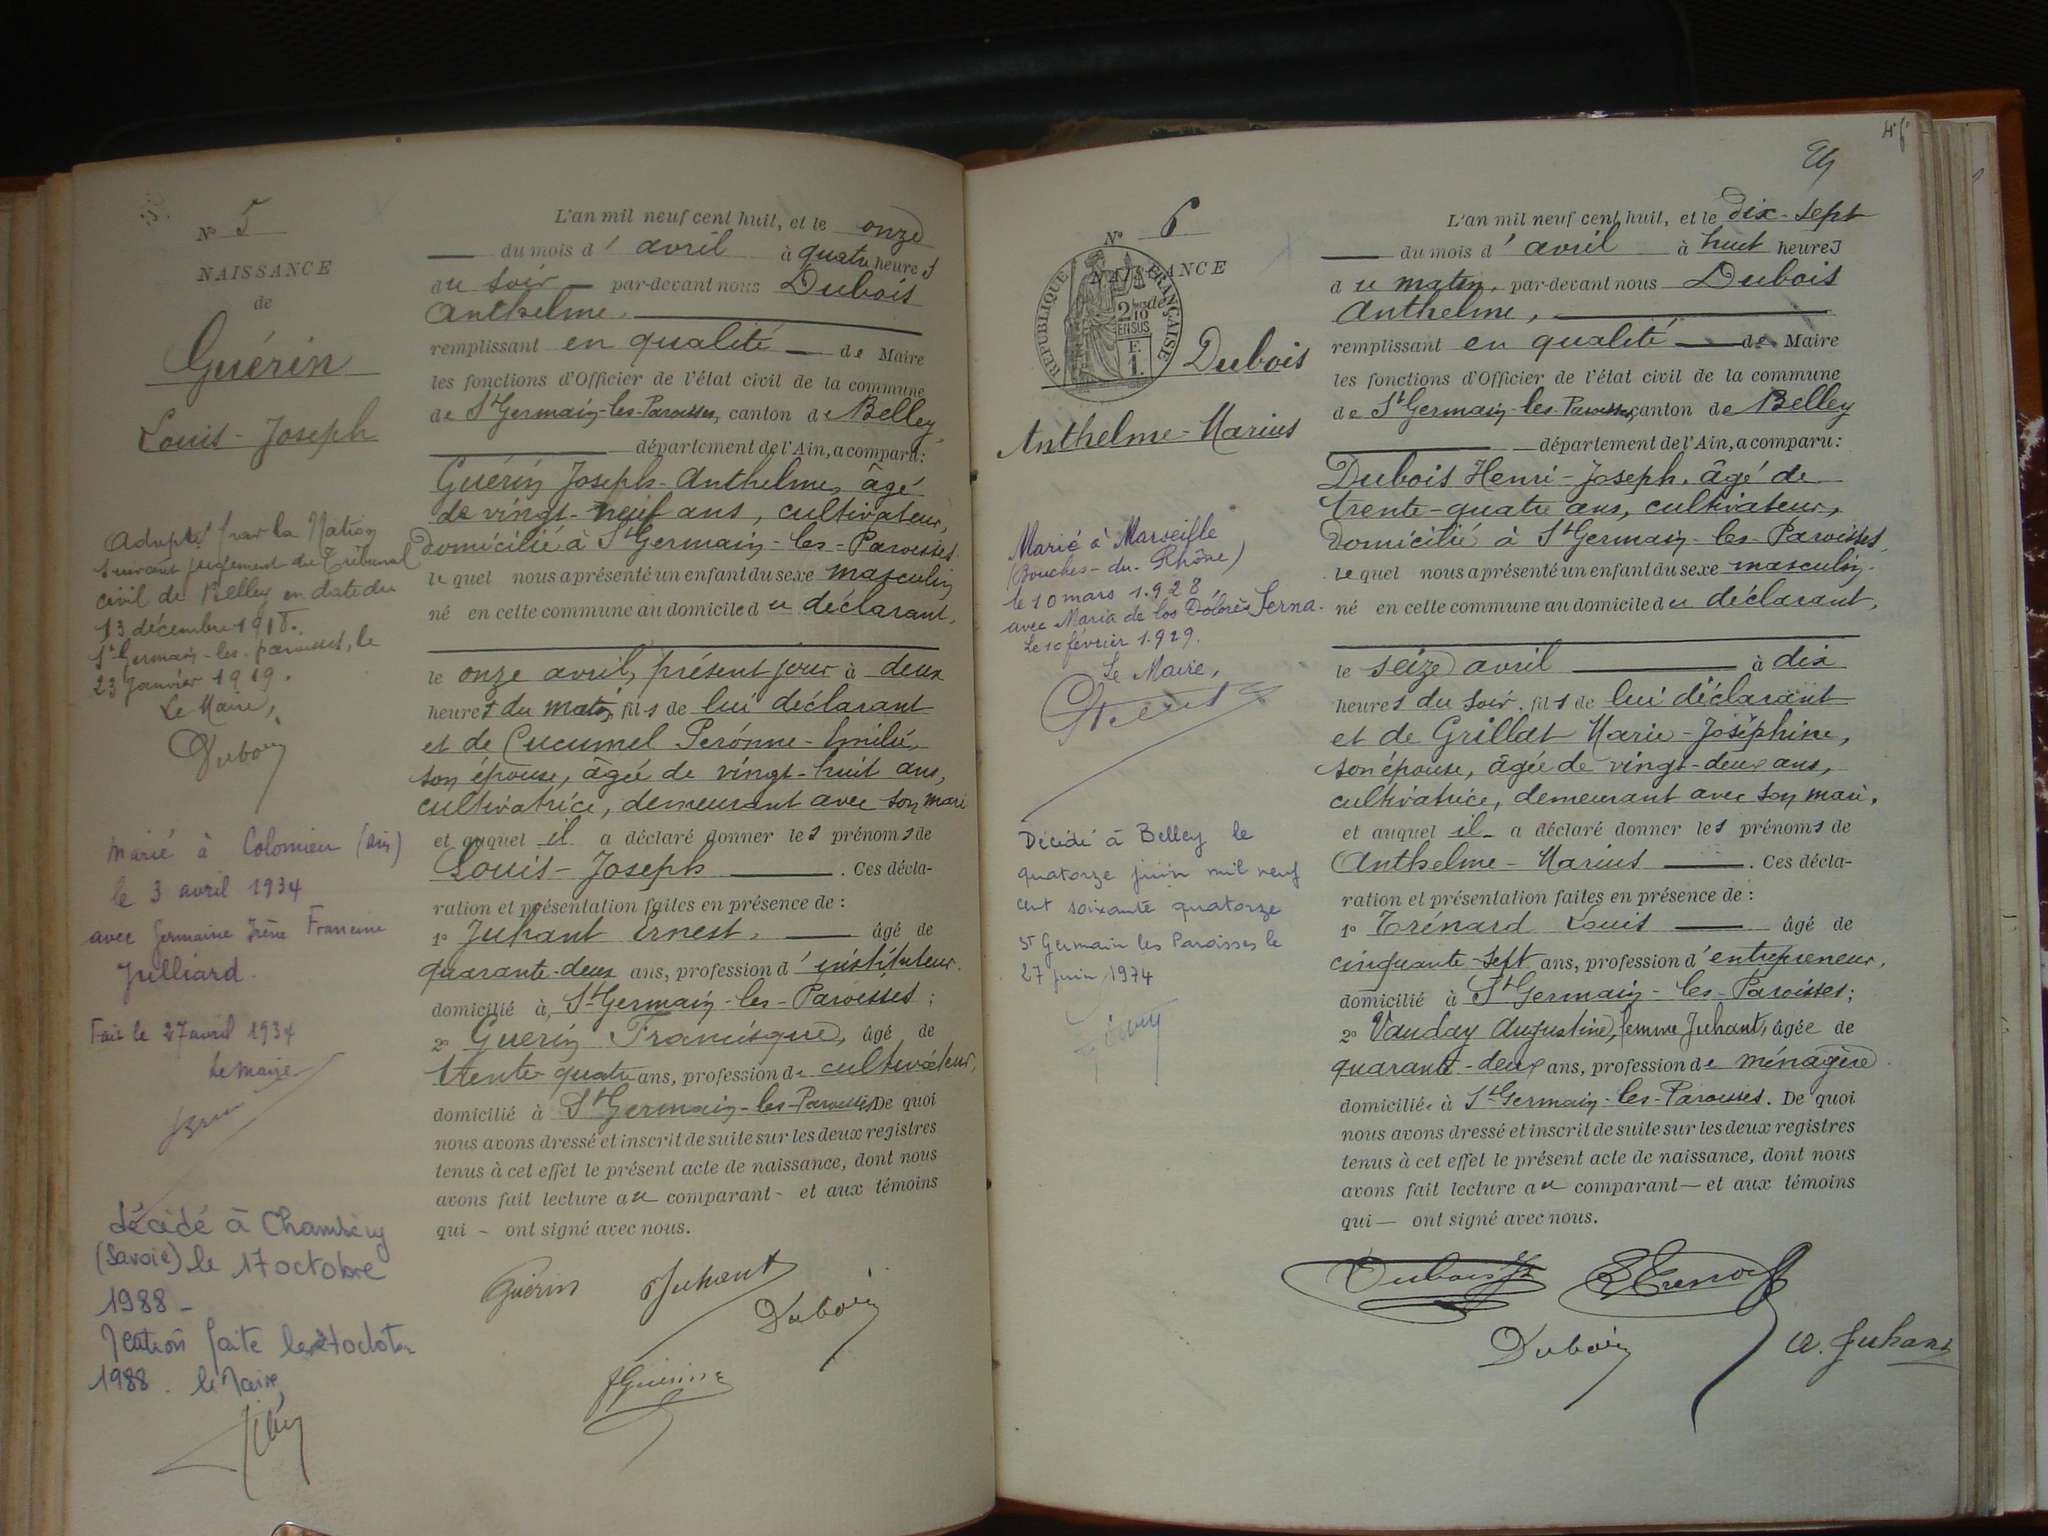 N° 5
NAISSANCE
de
Guérin
Louis-Joseph
Adopté par la Nation
suivant jugement du Tribunal
civil de Belley en date du
13 décembre 1918.
St Germain-les-paroisses, le
23 Janvier 1919.
Le Maire,
Dubois
Marié à Colomieu (ain)
le 3 avril 1934
avec Germaine Irène Francine
Juilliard.
Fait le 27 avril 1934
Le maire
décédé à Chambéry
(Savoie) le 17 octobre
1988 -
faite le octobre
1988. le Maire,
L'an mil neuf cent huit, et le onze
du mois d'avril à quatre heures
du soir par-devant nous Dubois
Anthelme,
remplissant en qualité de Maire
les fonctions d'Officier de l'état civil de la commune
de St Germain-les-Paroisses, canton de Belley,
département de l'Ain, a comparu:
Guérin Joseph-Anthelme, âgé
de vingt-neuf ans, cultivateur,
domicilié à St Germain-les-Paroisses.
lequel nous a présenté un enfant du sexe masculin
né en cette commune au domicile du déclarant,
le onze avril, présent jour à deux
heures du matin, fils de lui déclarant
et de Cucumel Péronne-Emilie,
son épouse, âgée de vingt-huit ans,
cultivatrice, demeurant avec son mari
et auquel il a déclaré donner les prénoms de
Louis-Joseph. Ces décla-
ration et présentation faites en présence de :
1° Juhant Ernest, âgé de
quarante-deux ans, profession d'instituteur.
domicilié à St Germain-les-Paroisses ;
2° Guérin Francisque, âgé de
trente-quatre ans, profession de cultivateur,
domicilié à St Germain-les-Paroisses De quoi
nous avons dressé et inscrit de suite sur les deux registres
tenus à cet effet le présent acte de naissance, dont nous
avons fait lecture au comparant - et aux témoins
qui - ont signé avec nous.
Guérin Juhant
Dubois
FGuérin
24
N° 6
NAISSANCE
de
RÉPUBLIQUE FRANÇAISE
2/10
EN SUS
F.
1.
Dubois
Anthelme-Marius
Marié à Marseille
(Bouches-du-Rhône)
le 10 mars 1.928
avec Maria de los Dolorès Serna.
Le 10 février 1.929.
Le Maire,
Décédé à Belley le
quatorze juin mil neuf
cent soixante quatorze
St Germain les Paroisses le
27 juin 1974
L'an mil neuf cent huit, et le dix-sept
du mois d'avril à huit heures
du matin, par-devant nous Dubois
Anthelme,
remplissant en qualité de Maire
les fonctions d'Officier de l'état civil de la commune
de St Germain-les-Paroisses, canton de Belley
département de l'Ain, a comparu:
Dubois Henri-Joseph, âgé de
trente-quatre ans, cultivateur,
domicilié à St Germain-les-Paroisses,
lequel nous a présenté un enfant du sexe masculin.
né en cette commune au domicile du déclarant,
le seize avril à dix
heures du soir, fils de lui déclarant
et de Grillat Marie-Joséphine,
son épouse, âgée de vingt-deux ans,
cultivatrice, demeurant avec son mari.
et auquel il a déclaré donner les prénoms de
Anthelme-Marius. Ces décla-
ration et présentation faites en présence de :
1° Trénard Louis âgé de
cinquante-sept ans, profession d'entrepreneur,
domicilié à St Germain-les-Paroisses;
2° Vauday Augustine, femme Juhant, âgée de
quarante-deux ans, profession de ménagère
domiciliée à St Germain-les-Paroisses. De quoi
nous avons dressé et inscrit de suite sur les deux registres
tenus à cet effet le présent acte de naissance, dont nous
avons fait lecture au comparant — et aux témoins
qui — ont signé avec nous.
Dubois
Dubois
A. Juhant